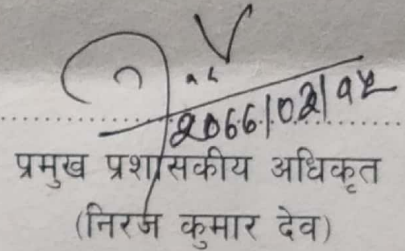 2066/02/१५
प्रमुख प्रशासकीय अधिकृत
(निरज कुमार देव)